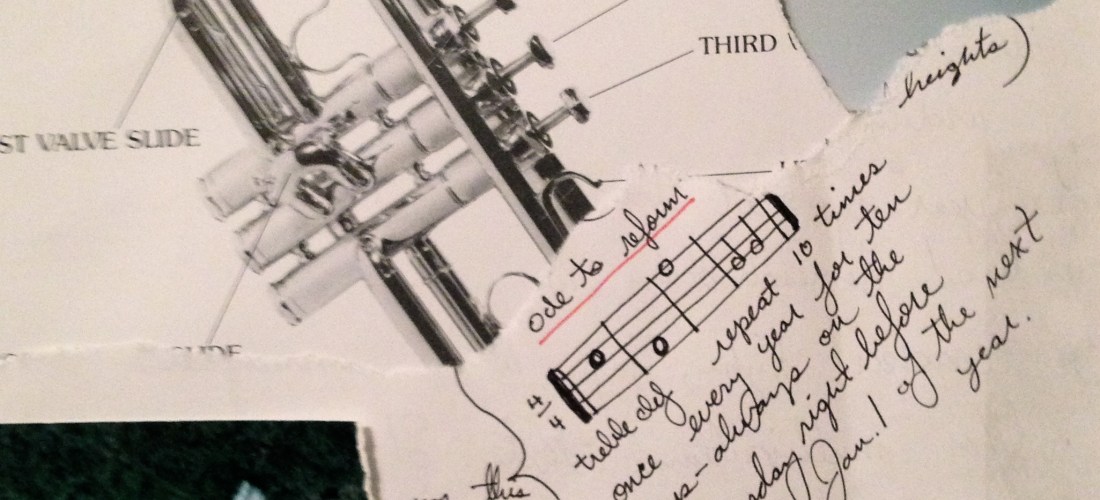 THIRD
ST VALVE SLIDE
SLIDE
heights)
ode to reform
4/4
treble clef repeat 10 times
once every year for ten
- always on the
right before
Jan. 1 of the next
year.
this